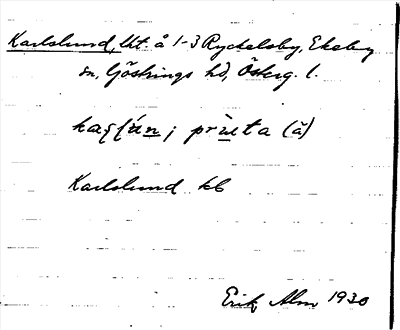 Karlslund, lht. å 1-3 Ryckelsby, Ekeby
sn, Göstrings hd, Österg. l.
(å)
Karlslund kb
Erik Alm 1930